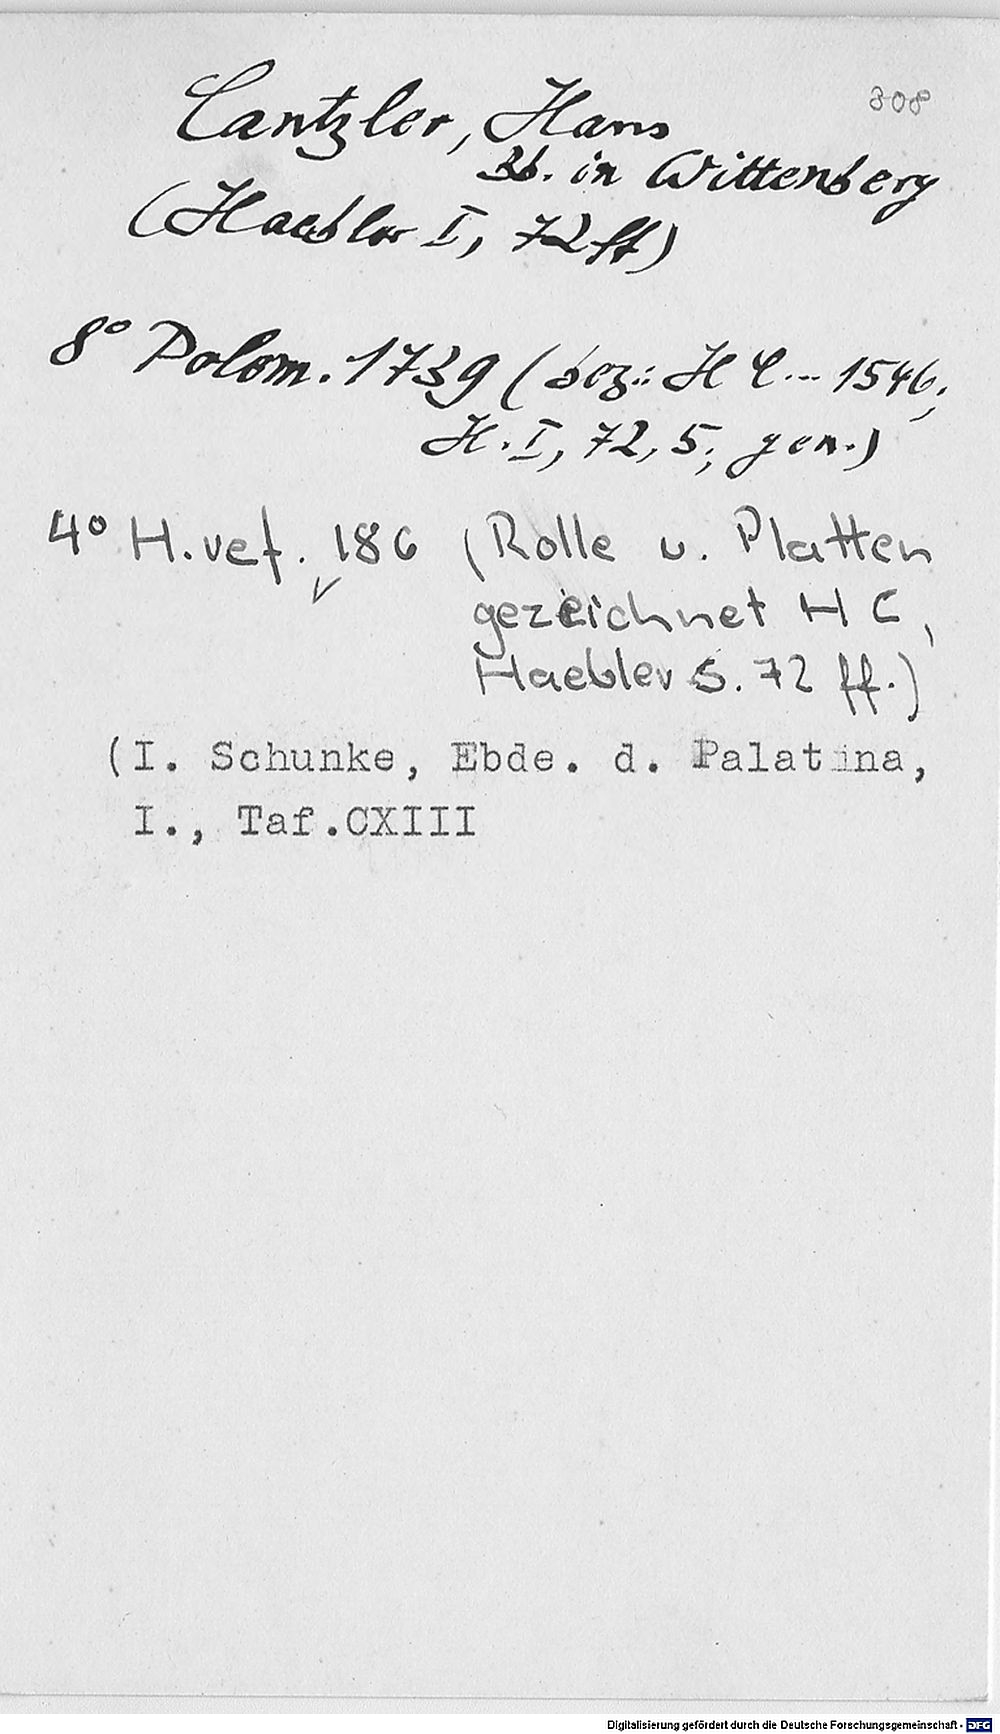 308
Cantzler, Hans
Bb. in Wittenberg
(Haebler I, 72 ff)
8° Polem. 1739 (bez.: H C ... 1546;
H. I, 72, 5; gen.)
4° H.ref. 186 (Rolle u. Platten
gezeichnet H C,
Haebler S. 72 ff.)
(I. Schunke, Ebde. d. Palatina,
I., Taf.CXIII
Digitalisierung gefördert durch die Deutsche Forschungsgemeinschaft - DFG